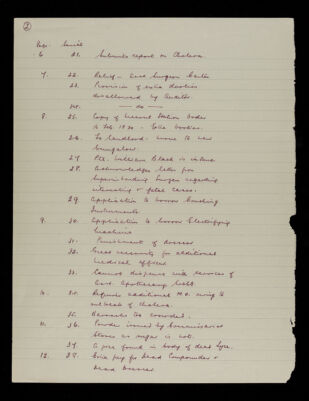 2
Page. Serial
6 21. Submits report on Cholera
7. 22. Relief - Asst Surgeon
23. Provision of extra doolies
disallowed by Auditor
24. — do —
8 25. Copy of Station Order
Feb. 1830 - doolies.
26. To Landlord - move to new
bungalow
27 Pte. William Black is
28. Acknowledges letter from
Superintending Surgeon regarding
interesting & fatal cases.
29 Application to borrow
Instruments
9. 30. Application to borrow Electrifying
Machine
31. Punishment of Dressers
32. Great necessity for additional
medical officer
33. Cannot dispense with services of
Asst. Apothecary
10. 34. Refuses additional M.O. owing to
outbreak of Cholera.
35. Barracks too crowded.
11. 36. Powder issued by Commissariat
Stores as sugar is not.
37. found in body of dead
12. 38. pay for Head Compounder &
Head Dresser